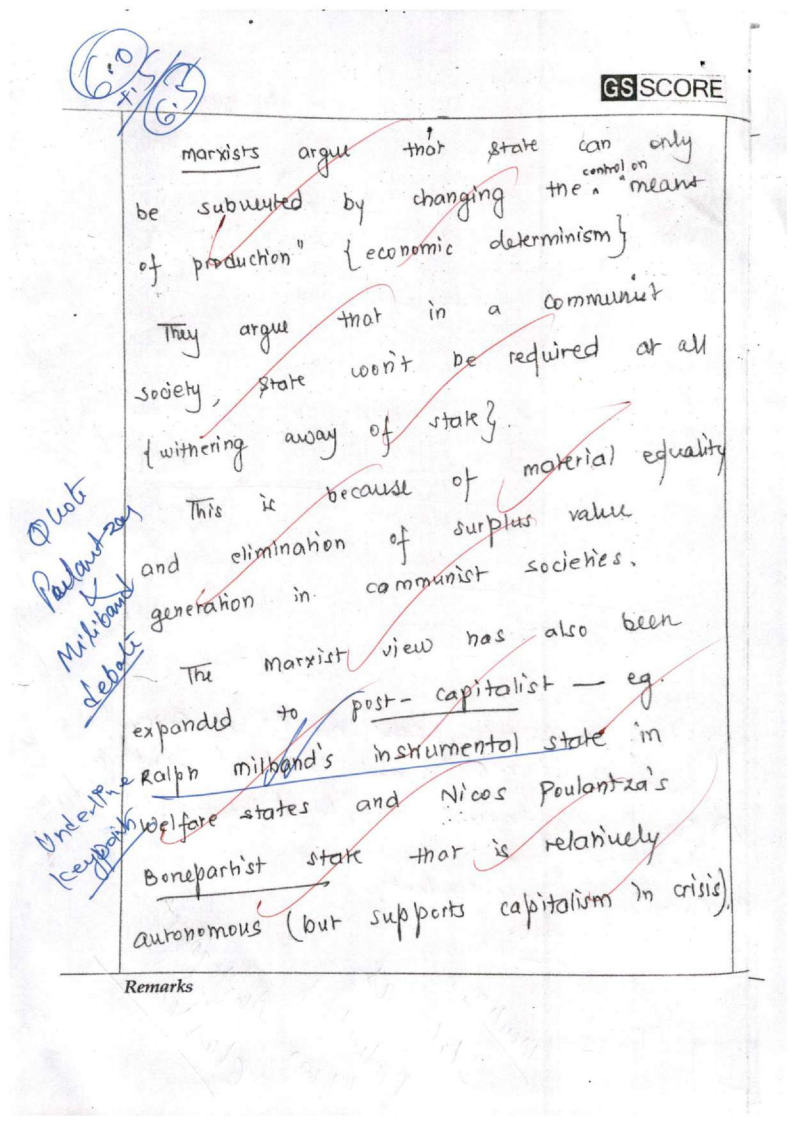 6.0
+.5
6.5
GS SCORE
marxists argue that state can only
be subverted by changing the control on "means
of production" {economic determinism}
They argue that in a communist
society, state won't be required at all
{withering away of state}.
This is because of material equality
and elimination of surplus value
generation in communist societies.
The marxist view has also been
expanded to post-capitalist — eg.
Ralph milband's instrumental state in
welfare states and Nicos Poulantza's
Bonepartist state that is relatively
autonomous (but supports capitalism in crisis).
Quote
Poulantzas
&
Miliband
debate
Underline
keypoints
Remarks